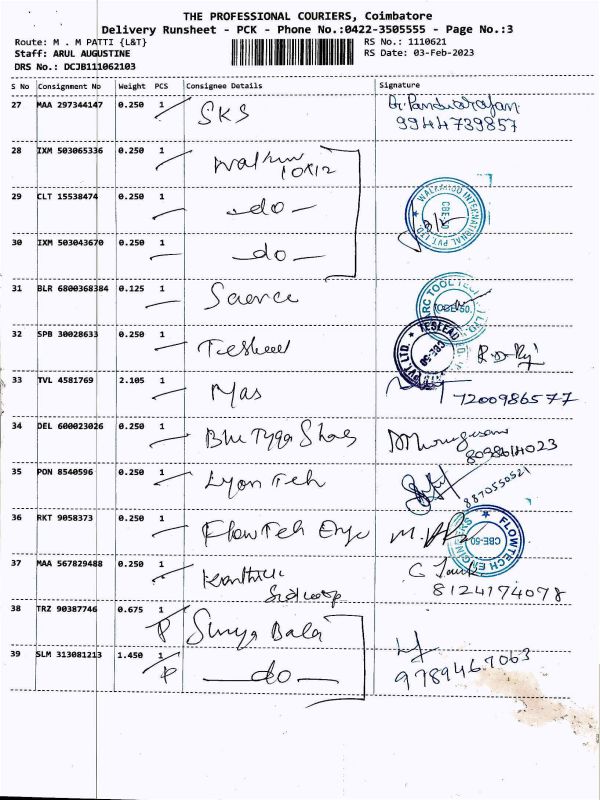 THE PROFESSIONAL COURIERS, Coimbatore
Delivery Runsheet - PCK - Phone No.:0422-3505555 - Page No.:3
Route: M . M PATTI {L&T} RS No.: 1110621
Staff: ARUL AUGUSTINE RS Date: 03-Feb-2023
DRS No.: DCJB111062103
S No Consignment No Weight PCS Consignee Details Signature
27 MAA 297344147 0.250 1 SKS
9944739857
28 IXM 503065336 0.250 1
29 CLT 15538474 0.250 1 -do- INTERNATIONAL PVT LTD CBE-50
30 IXM 503043670 0.250 1 -do-
31 BLR 6800368384 0.125 1 ARC TOOL TEC CBE-50.
32 SPB 30028633 0.250 1 TESLEAD PVT. LTD.
33 TVL 4581769 2.105 1 Mas 7200986577
34 DEL 600023026 0.250 1
35 PON 8540596 0.250 1 8870550521
36 RKT 9058373 0.250 1 FlowTeh FLOWTECH ENGINEERS CBE-50.
37 MAA 567829488 0.250 1
8124174078
38 TRZ 90387746 0.675 1 P Surya Bala
39 SLM 313081213 1.450 1 P -do- 9789467063